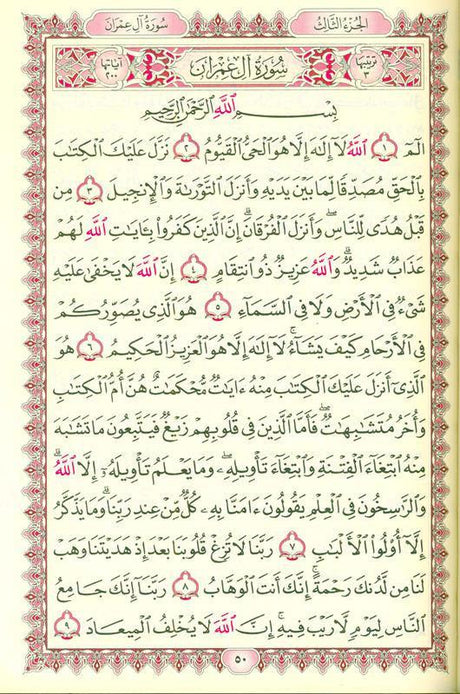 سُورَةُ آلِ عِمْرَانَ
الجُزْءُ الثَّالِثُ
آيَاتُهَا ٢٠٠
سُورَةُ آلِ عِمْرَانَ
تَرْتِيبُهَا ٣
بِسْمِ اللَّهِ الرَّحْمَٰنِ الرَّحِيمِ
الٓمٓ ١ اللَّهُ لَآ إِلَٰهَ إِلَّا هُوَ الْحَىُّ الْقَيُّومُ ٢ نَزَّلَ عَلَيْكَ الْكِتَٰبَ
بِالْحَقِّ مُصَدِّقًا لِّمَا بَيْنَ يَدَيْهِ وَأَنزَلَ التَّوْرَىٰةَ وَالْإِنجِيلَ ٣ مِن
قَبْلُ هُدًى لِّلنَّاسِ وَأَنزَلَ الْفُرْقَانَ ۗ إِنَّ الَّذِينَ كَفَرُوا بِـَٔايَٰتِ اللَّهِ لَهُمْ
عَذَابٌ شَدِيدٌ ۗ وَاللَّهُ عَزِيزٌ ذُو انتِقَامٍ ٤ إِنَّ اللَّهَ لَا يَخْفَىٰ عَلَيْهِ
شَىْءٌ فِى الْأَرْضِ وَلَا فِى السَّمَآءِ ٥ هُوَ الَّذِى يُصَوِّرُكُمْ
فِى الْأَرْحَامِ كَيْفَ يَشَآءُ ۚ لَآ إِلَٰهَ إِلَّا هُوَ الْعَزِيزُ الْحَكِيمُ ٦ هُوَ
الَّذِىٓ أَنزَلَ عَلَيْكَ الْكِتَٰبَ مِنْهُ ءَايَٰتٌ مُّحْكَمَٰتٌ هُنَّ أُمُّ الْكِتَٰبِ
وَأُخَرُ مُتَشَٰبِهَٰتٌ ۖ فَأَمَّا الَّذِينَ فِى قُلُوبِهِمْ زَيْغٌ فَيَتَّبِعُونَ مَا تَشَٰبَهَ
مِنْهُ ابْتِغَآءَ الْفِتْنَةِ وَابْتِغَآءَ تَأْوِيلِهِۦ ۗ وَمَا يَعْلَمُ تَأْوِيلَهُۥٓ إِلَّا اللَّهُ ۗ
وَالرَّٰسِخُونَ فِى الْعِلْمِ يَقُولُونَ ءَامَنَّا بِهِۦ كُلٌّ مِّنْ عِندِ رَبِّنَا ۗ وَمَا يَذَّكَّرُ
إِلَّآ أُولُوا الْأَلْبَٰبِ ٧ رَبَّنَا لَا تُزِغْ قُلُوبَنَا بَعْدَ إِذْ هَدَيْتَنَا وَهَبْ
لَنَا مِن لَّدُنكَ رَحْمَةً ۚ إِنَّكَ أَنتَ الْوَهَّابُ ٨ رَبَّنَآ إِنَّكَ جَامِعُ
النَّاسِ لِيَوْمٍ لَّا رَيْبَ فِيهِ ۚ إِنَّ اللَّهَ لَا يُخْلِفُ الْمِيعَادَ ٩
٥٠